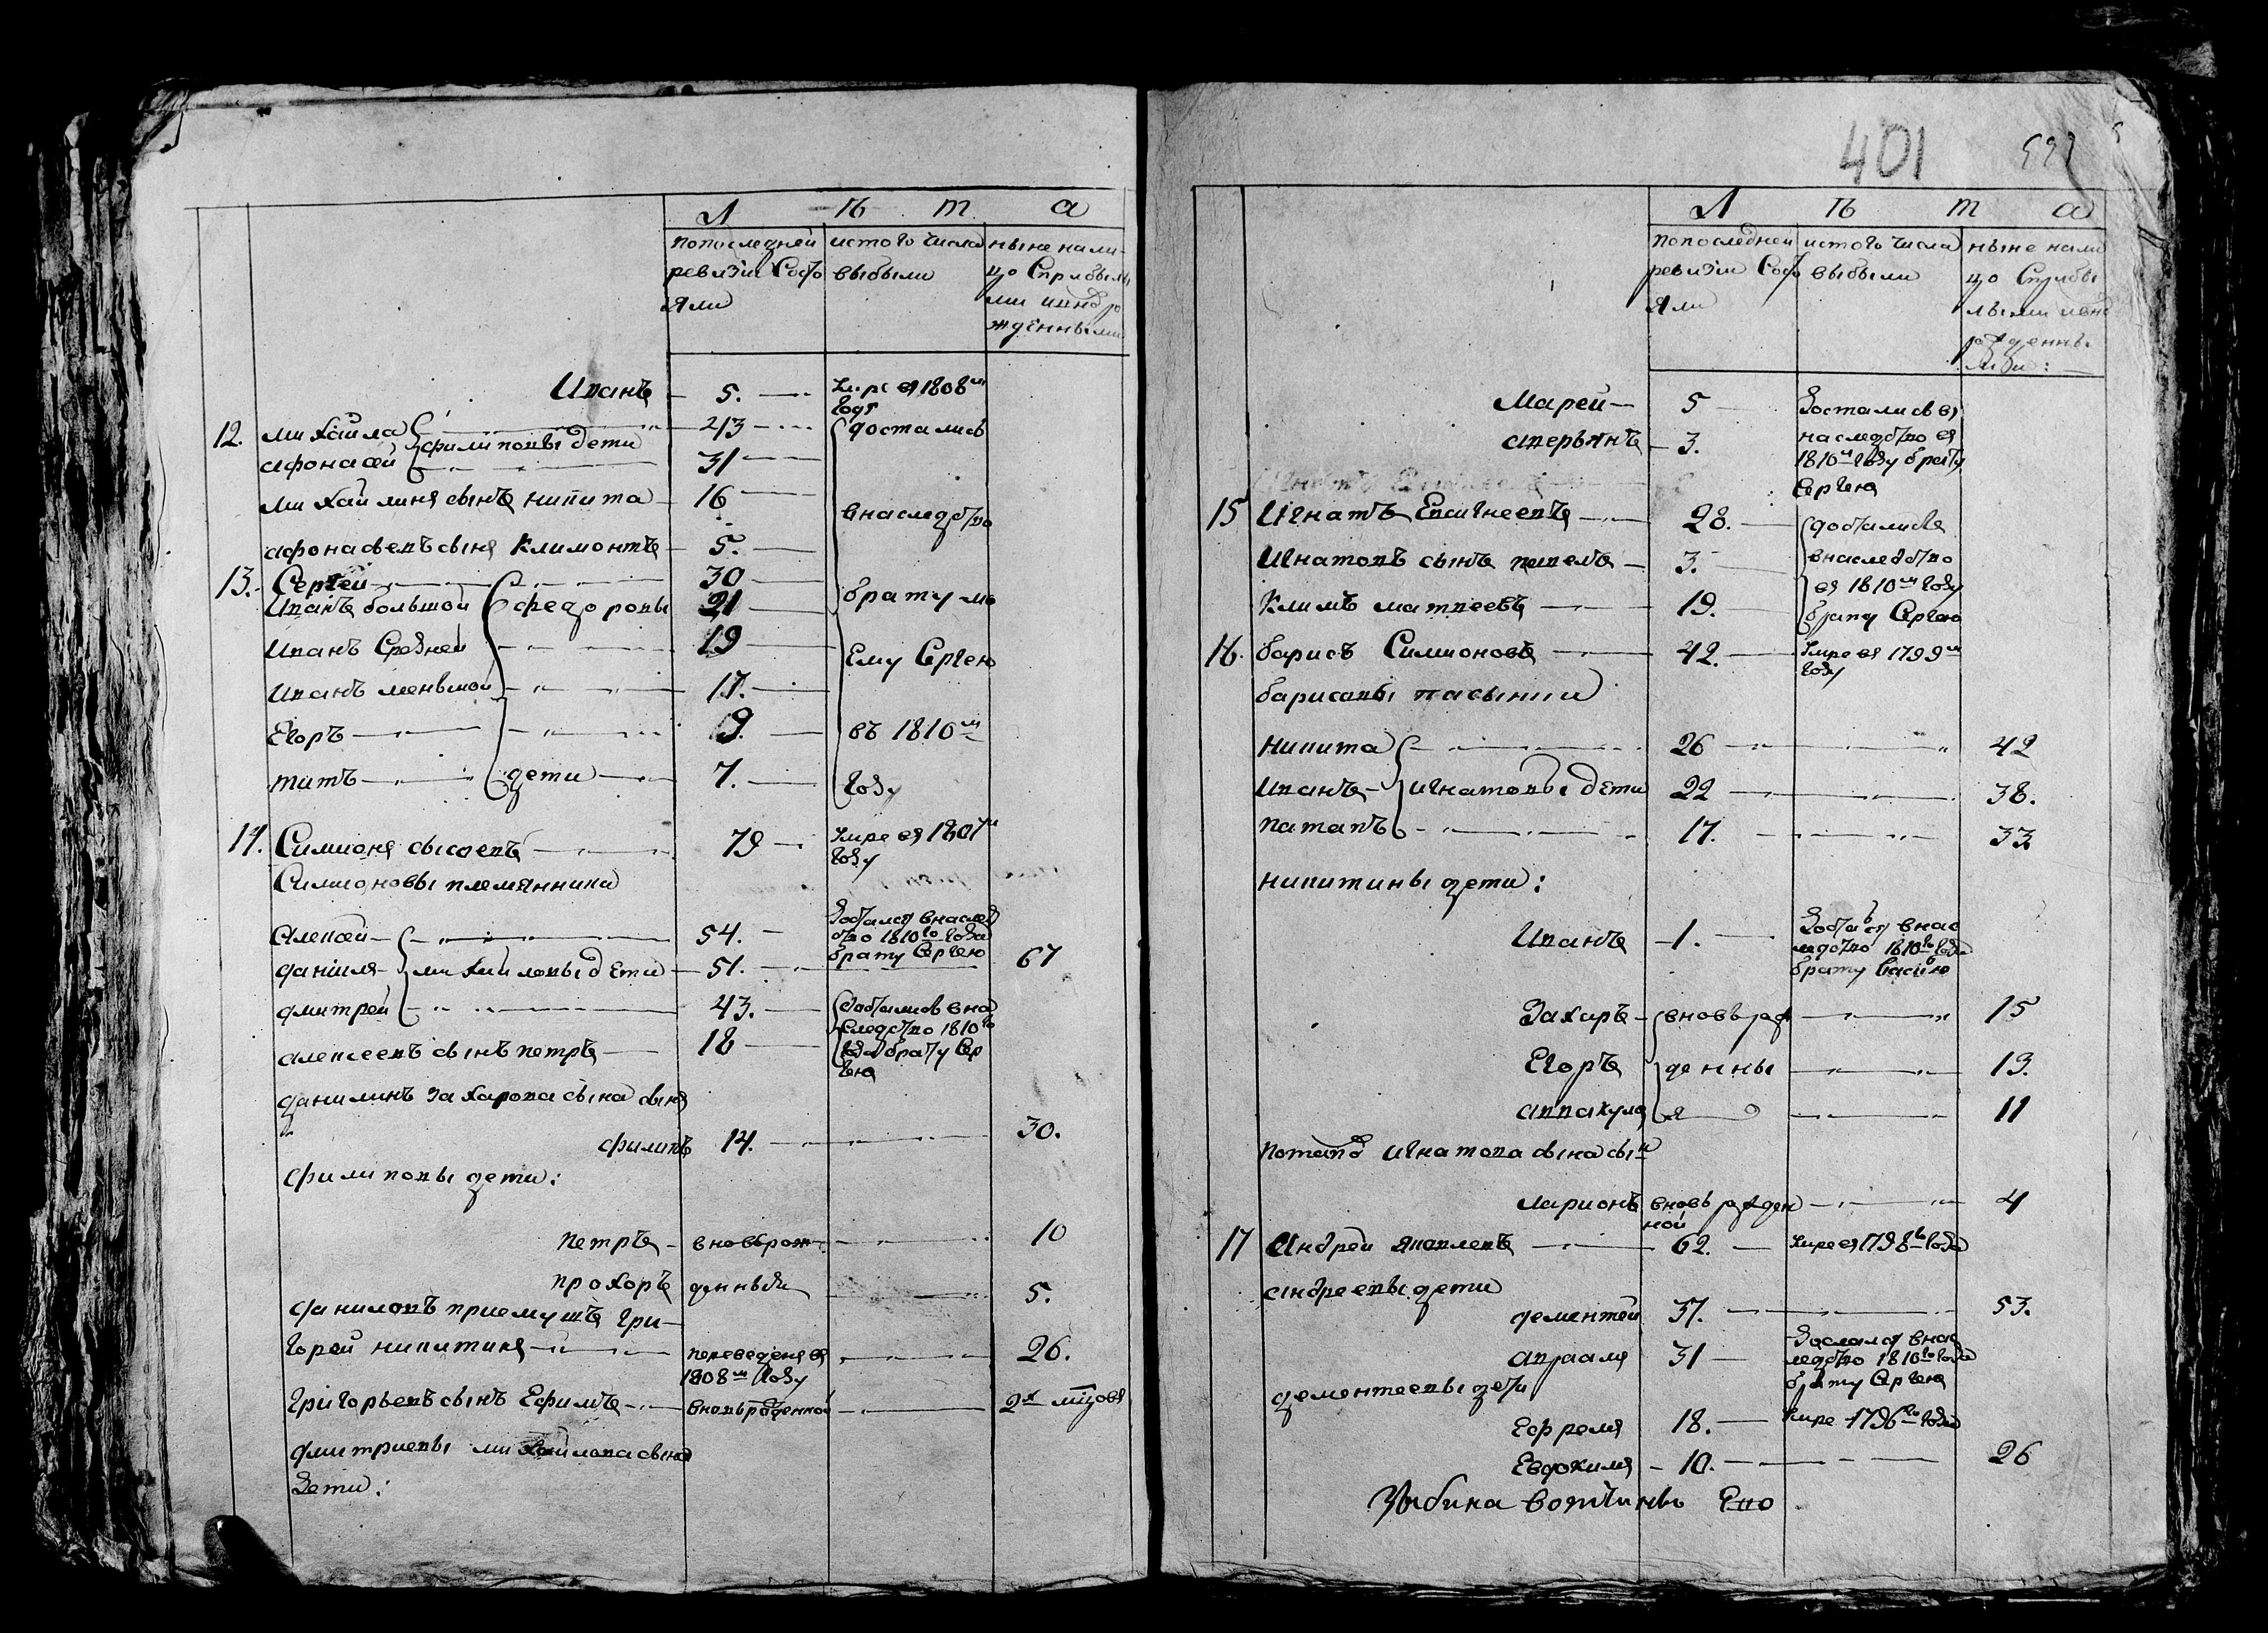 Л ѣ т а
попоследней ревизіи Состояли
истого числа выбыли
ныне налицо Сприбылыми ивновь рожденными
Иванъ — 5. — Умре въ 1808м годе
12. михайла — 43 — достались
афонасей филиповы дети — 31
михайлинъ сынъ никита — 16 — внаследство
афонасьевъ сынъ Климонтъ — 5.
13. Сергеи — 30
Иванъ большой федоровы — 21 — брату мо
Иванъ Средней — 19 — Ему Сергею
Иванъ меньшой — 17.
Егоръ — 9. — въ 1810м
титъ — дети — 7. — году
14. Симионъ сысоевъ — 79 — Умре въ 1807м
году
Симионовы племянники
Алексей — 54. — достался внаслед
ство 1810го года
брату Сергею
данила михайловы дети — 51. — 67
дмитрей — 43. — достались вна
алексеевъ сынъ петръ — 18 — следство 1810го
года брату Сер
гею
данилинъ захарова сына сынъ
филипъ 14. — 30.
филиповы дети:
петръ — вновьрож — 10
прохоръ денныя — 5.
даниловъ приемышъ гри—
горей никитинъ — переведенъ въ — 26.
1808м году
григорьевъ сынъ Ефимъ — вновьрожденной — 2х мцовъ
дмитриевы михайлова сына
дети:
401
Л ѣ т а
попоследней ревизіи Состояли
истого числа выбыли
ныне налицо Сприбылыми ивновь рожденными:
Марей — 5 — достались въ
аверьянъ — 3. — наследство въ
1810м году брату
Сергею
15 Игнатъ Евсигнеевъ — 28. — достались
Игнатовъ сынъ павелъ — 3. — внаследство
въ 1810м году
Климъ матвеевъ — 19. — брату Сергею
16. барисъ Симионовъ — 42. — Умре въ 1799м
году
барисовы пасынки
никита — 26 — 42
Иванъ — игнатовы дети 22 — 38.
патапъ — 17. — 33
никитины дети:
Иванъ — 1. — достался внас
ледство 1810го года
брату Василью
Захаръ — вновьрож — 15
Егоръ денны — 13.
аввакумъ я — 11
потапъ игнатова сына сынъ
ларионъ вновь рожден — 4
ной
17 Андрей яковлевъ — 62. — Умре въ 1798го года
андреевы дети
дементей 37. — 53.
авраамъ 31 — достался внас
ледство 1810го года
брату Сергею
дементеевы дети
Ефремъ 18. — Умре 1796го года
Евдокимъ — 10. — 26
Зыбина вотчины Его